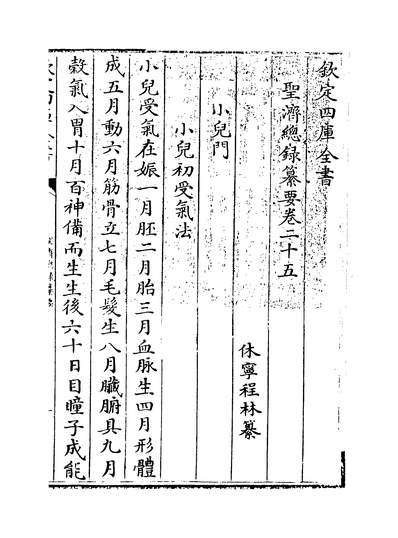 欽定四庫全書
聖濟總録纂要卷二十五
休寧程林纂
小兒門
小兒初受氣法
小兒受氣在娠一月胚二月胎三月血脉生四月形體
成五月動六月筋骨立七月毛髮生八月臟腑具九月
穀氣入胃十月百神備而生生後六十日目瞳子成能